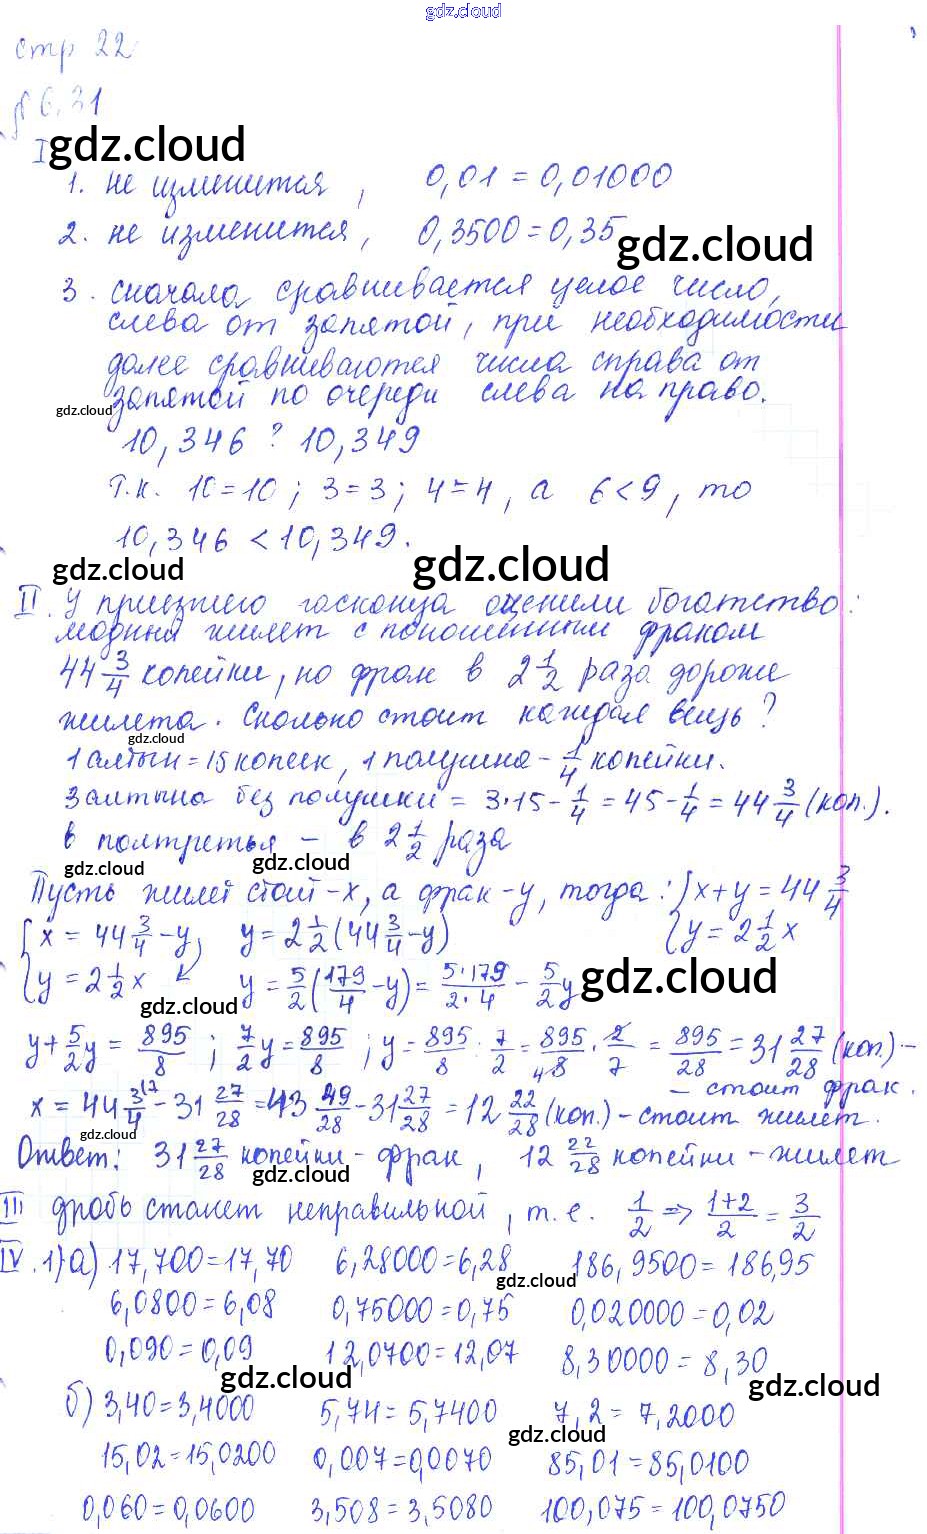 gdz.cloud
стр 22
№ 6,31
I gdz.cloud
1. не изменится, 0,01 = 0,01000
2. не изменится, 0,3500 = 0,35
gdz.cloud
3. сначала сравнивается целое число,
слева от запятой, при необходимости
далее сравниваются числа справа от
запятой по очереди слева на право.
gdz.cloud
10,346 ? 10,349
Т.к. 10=10; 3=3; 4=4, а 6<9, то
10,346 < 10,349.
gdz.cloud gdz.cloud
II. У приезжего гасконца оценили богатство:
модный жилет с поношенным фраком
44 3/4 копейки, но фрак в 2 1/2 раза дороже
жилета. Сколько стоит каждая вещь?
gdz.cloud
1 алтын = 15 копеек, 1 полушка - 1/4 копейки.
3 алтына без полушки = 3·15 - 1/4 = 45 - 1/4 = 44 3/4 (коп.).
в полтретья - в 2 1/2 раза
gdz.cloud gdz.cloud
Пусть жилет стоит - x, а фрак - y, тогда: { x + y = 44 3/4
{ x = 44 3/4 - y, y = 2 1/2 (44 3/4 - y) { y = 2 1/2 x
{ y = 2 1/2 x ↙ y = 5/2 (179/4 - y) = 5·179/2·4 - 5/2 y
gdz.cloud gdz.cloud
y + 5/2 y = 895/8 ; 7/2 y = 895/8 ; y = 895/8 : 7/2 = 895/4 8 · 2/7 = 895/28 = 31 27/28 (коп.) -
- стоит фрак.
x = 44 3/4 - 31 27/28 = 43 49/28 - 31 27/28 = 12 22/28 (коп.) - стоит жилет.
gdz.cloud
Ответ: 31 27/28 копейки - фрак, 12 22/28 копейки - жилет
gdz.cloud gdz.cloud
III дробь станет неправильной, т.е. 1/2 => 1+2/2 = 3/2
IV. 1) а) 17,700=17,70 6,28000=6,28 186,9500=186,95
gdz.cloud
6,0800=6,08 0,75000=0,75 0,020000=0,02
0,090=0,09 12,0700=12,07 8,30000=8,30
gdz.cloud gdz.cloud
б) 3,40=3,4000 5,74=5,7400 7,2=7,2000
gdz.cloud
15,02=15,0200 0,007=0,0070 85,01=85,0100
0,060=0,0600 3,508=3,5080 100,075=100,0750